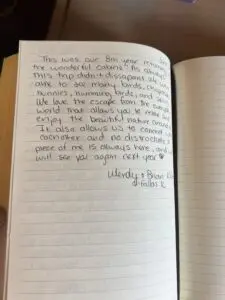 This was our 8th year return
the wonderful cabins. As always
this trip didn't dissapoint. We were
able to see many birds, chipmunks,
bunnies, humming birds, and
We love the escape from the
world that allows you to
enjoy the beautiful nature around
It also allows us to connect w/
eachother and no distractions. A
piece of me is always here, and we
will see you again next year ♥
Wendy & Brian